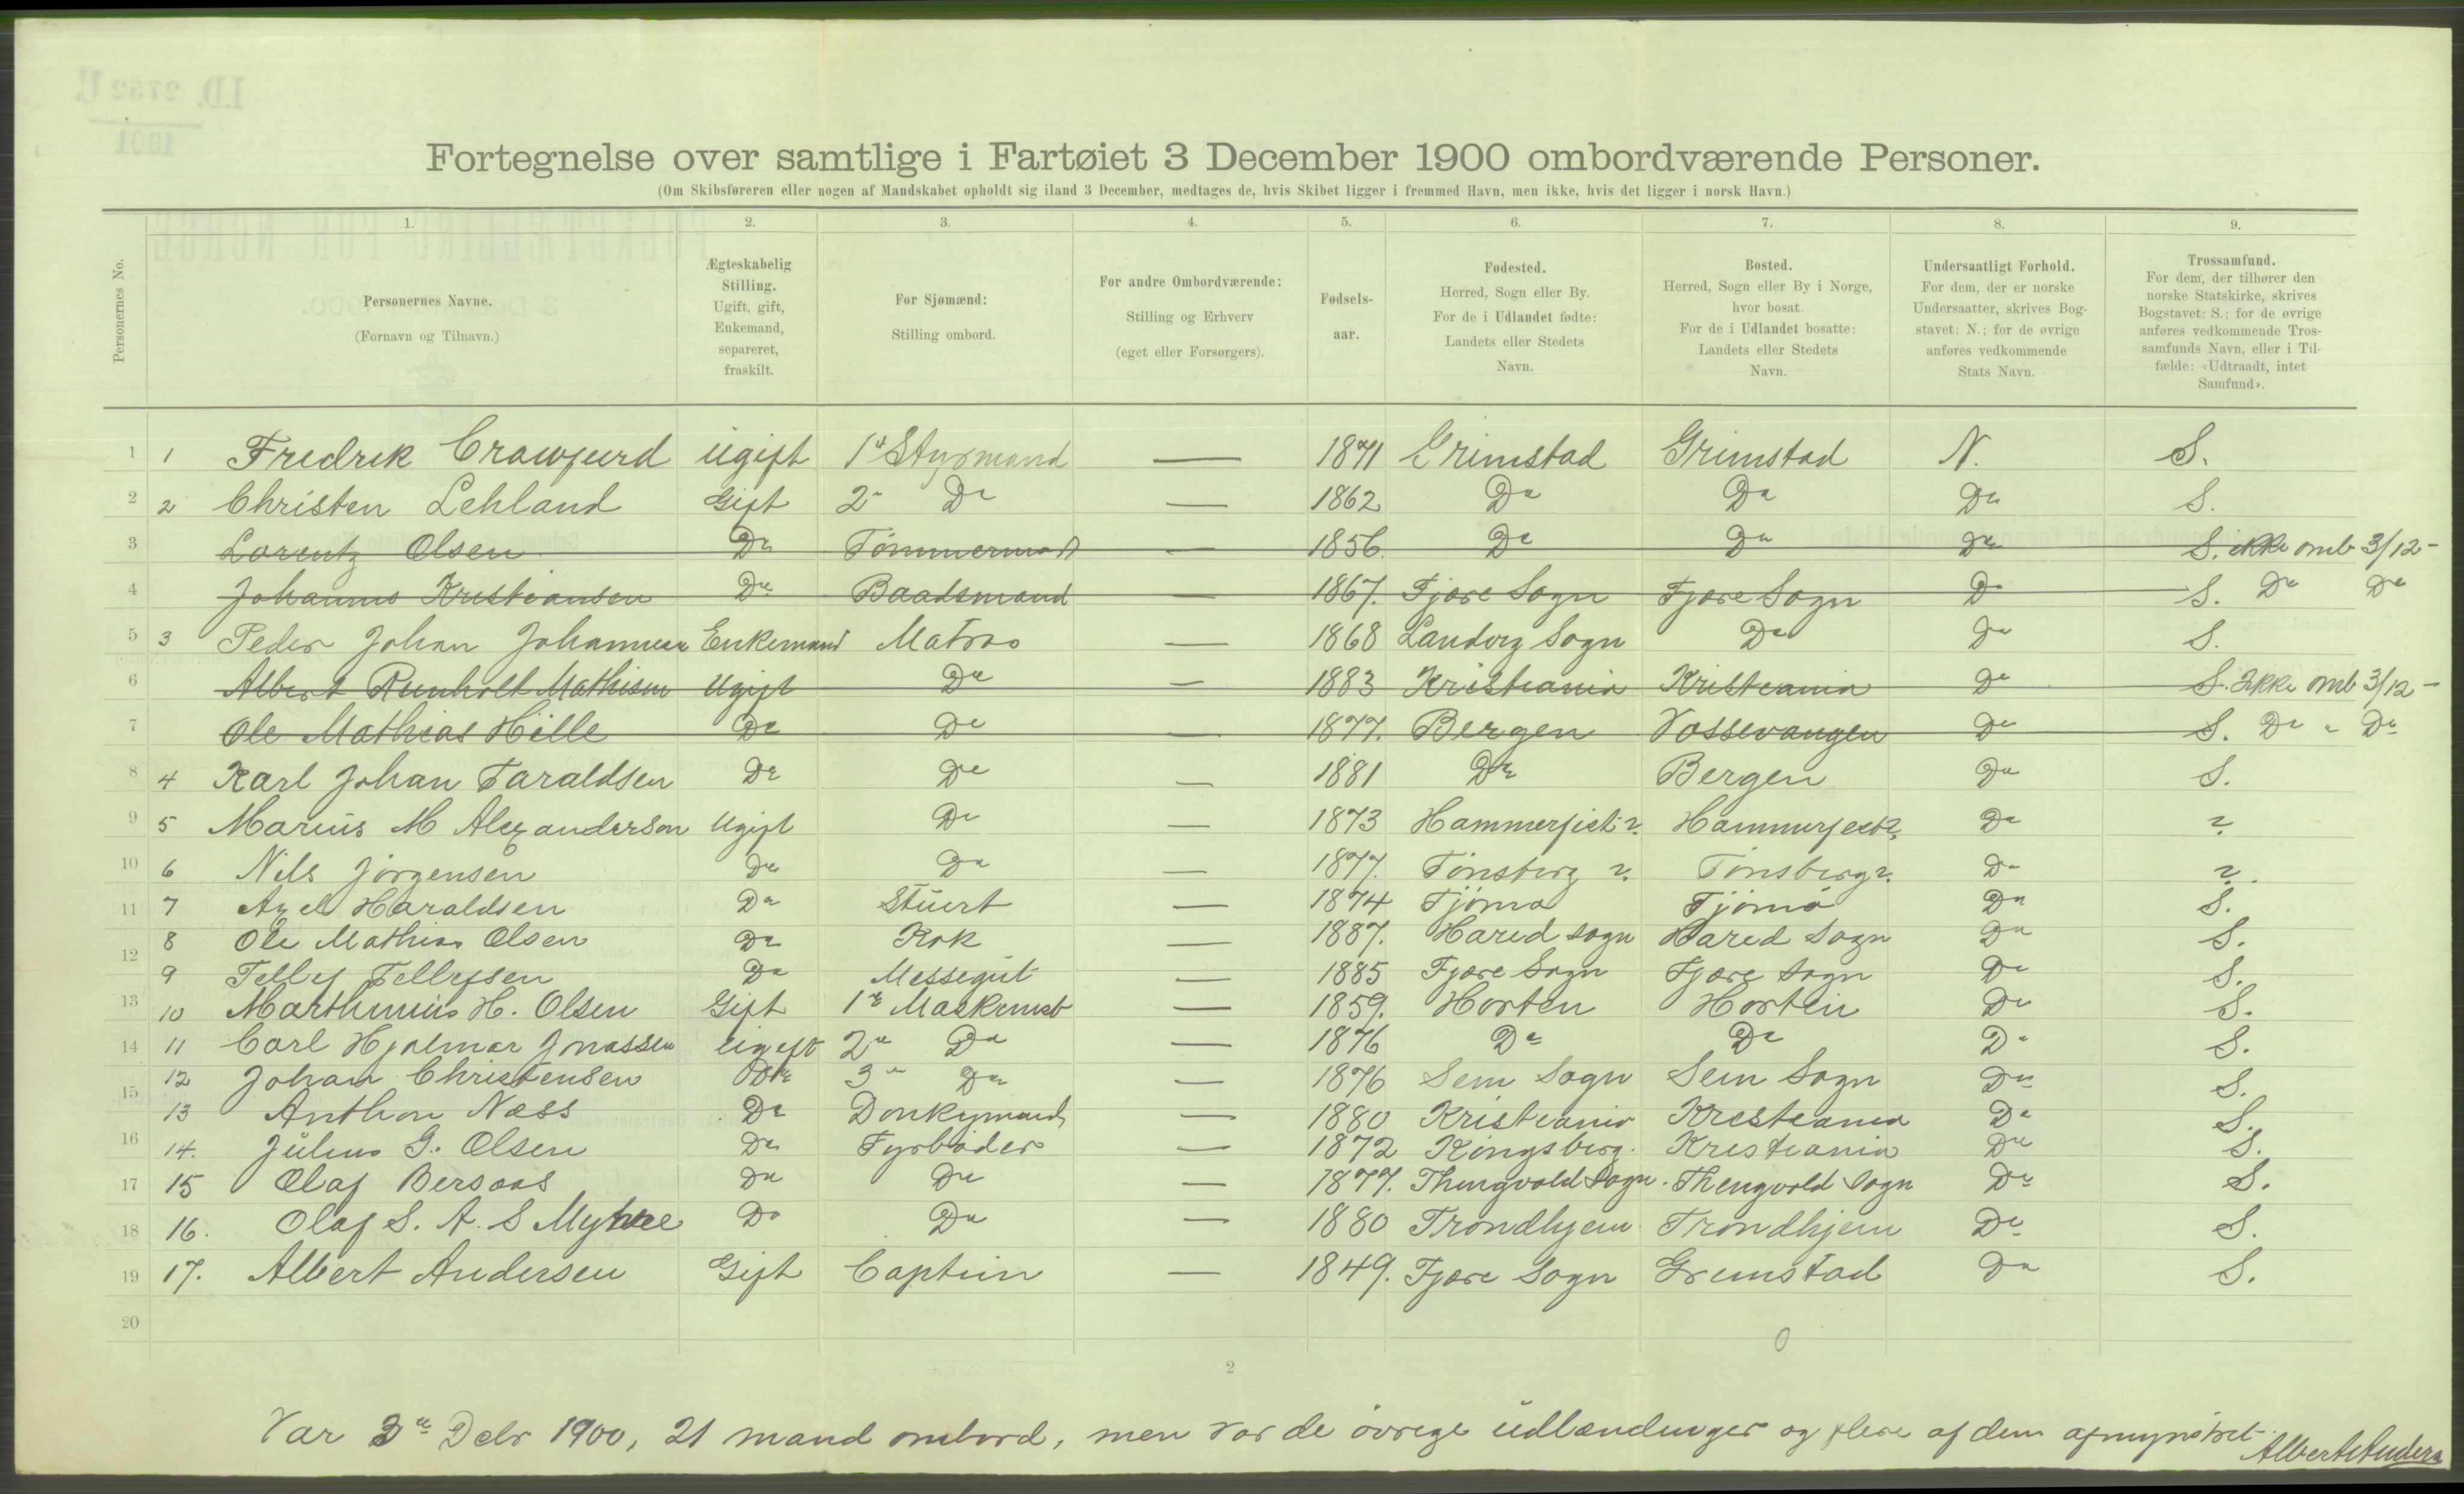 Fortegnelse over samtlige i Fartøiet 3 December 1900 ombordværende Personer.
(Om Skibsføreren eller nogen af Mandskabet opholdt sig iland 3 December, medtages de, hvis Skibet ligger i fremmed Havn, men ikke, hvis det ligger i norsk Havn.)
Personernes No.
1. 2. 3. 4. 5. 6. 7. 8. 9.
Personernes Navne.
(Fornavn og Tilnavn.)
Ægteskabelig
Stilling.
Ugift, gift,
Enkemand,
separeret,
fraskilt.
For Sjømænd:
Stilling ombord.
For andre Ombordværende:
Stilling og Erhverv
(eget eller Forsørgers).
Fødsels-
aar.
Fødested.
Herred, Sogn eller By.
For de i Udlandet fødte:
Landets eller Stedets
Navn.
Bosted.
Herred, Sogn eller By i Norge,
hvor bosat.
For de i Udlandet bosatte:
Landets eller Stedets
Navn.
Undersaatligt Forhold.
For dem, der er norske
Undersaatter, skrives Bog-
stavet: N.; for de øvrige
anføres vedkommende
Stats Navn.
Trossamfund.
For dem, der tilhører den
norske Statskirke, skrives
Bogstavet: S.; for de øvrige
anføres vedkommende Tros-
samfunds Navn, eller i Til-
fælde: «Udtraadt, intet
Samfund».
1 1 Fredrik Crawfurd ugift 1e Styrmand — 1871 Grimstad Grimstad N. S.
2 2 Christen Lehland Gift 2 Do — 1862 Do Do Do S.
3 Lorentz Olsen Do Tømmermand — 1856 Do Do Do S. ikke omb 3/12 -
4 Johannes Kristiansen Do Baadsmand — 1867. Fjære Sogn Fjære Sogn Do S. Do Do
5 3 Peder Johan Johannesen Enkemand Matros — 1868 Landvig Sogn Do Do S.
6 Albert Reinholt Mathisen Ugift Do — 1883 Kristiania Kristiania Do S. ikke omb 3/12 -
7 Ole Mathias Hille Do Do — 1877. Bergen Vossevangen Do S. Do " Do
8 4 Karl Johan Taraldsen Do Do — 1881 Do Bergen Do S.
9 5 Marius M Alexanderson Ugift Do — 1873 Hammerfest ? Hammerfest ? Do ?
10 6 Nils Jørgensen Do Do — 1877. Tønsberg ? Tønsberg ? Do ?
11 7 Axel Haraldsen Do Stuert — 1874 Tjømø Tjømø Do S.
12 8 Ole Mathias Olsen Do Kok — 1887. Hared sogn Hared Sogn Do S.
9 Tellef Tellefsen Do Messegut — 1885 Fjære Sogn Fjære Sogn Do S.
13 10 Marthinius H. Olsen Gift 1e Maskinist — 1859. Horten Horten Do S.
14 11 Carl Hjalmar Jonassen ugift 2e Do — 1876 Do Do Do S.
12 Johan Christensen Do 3e Do — 1876 Sem Sogn Sem Sogn Do S.
15 13 Anthon Næss Do Donkymand — 1880 Kristiania Kristiania Do S.
16 14. Julius G. Olsen Do Fyrbøder — 1872 Kongsberg. Kristiania Do S.
17 15 Olaf Bersaas Do Do — 1877. Thingvold Sogn. Thingvold Sogn Do S.
18 16. Olaf S. A. S Myhre Do Do — 1880 Trondhjem Trondhjem Do S.
19 17. Albert Andersen Gift Captein — 1849. Fjære Sogn Grimstad Do S.
20
0
2
Var 3e Debr 1900, 21 mand ombord, men var de øvrige udlændinger og flere af dem afmynstret.
Albert Anders